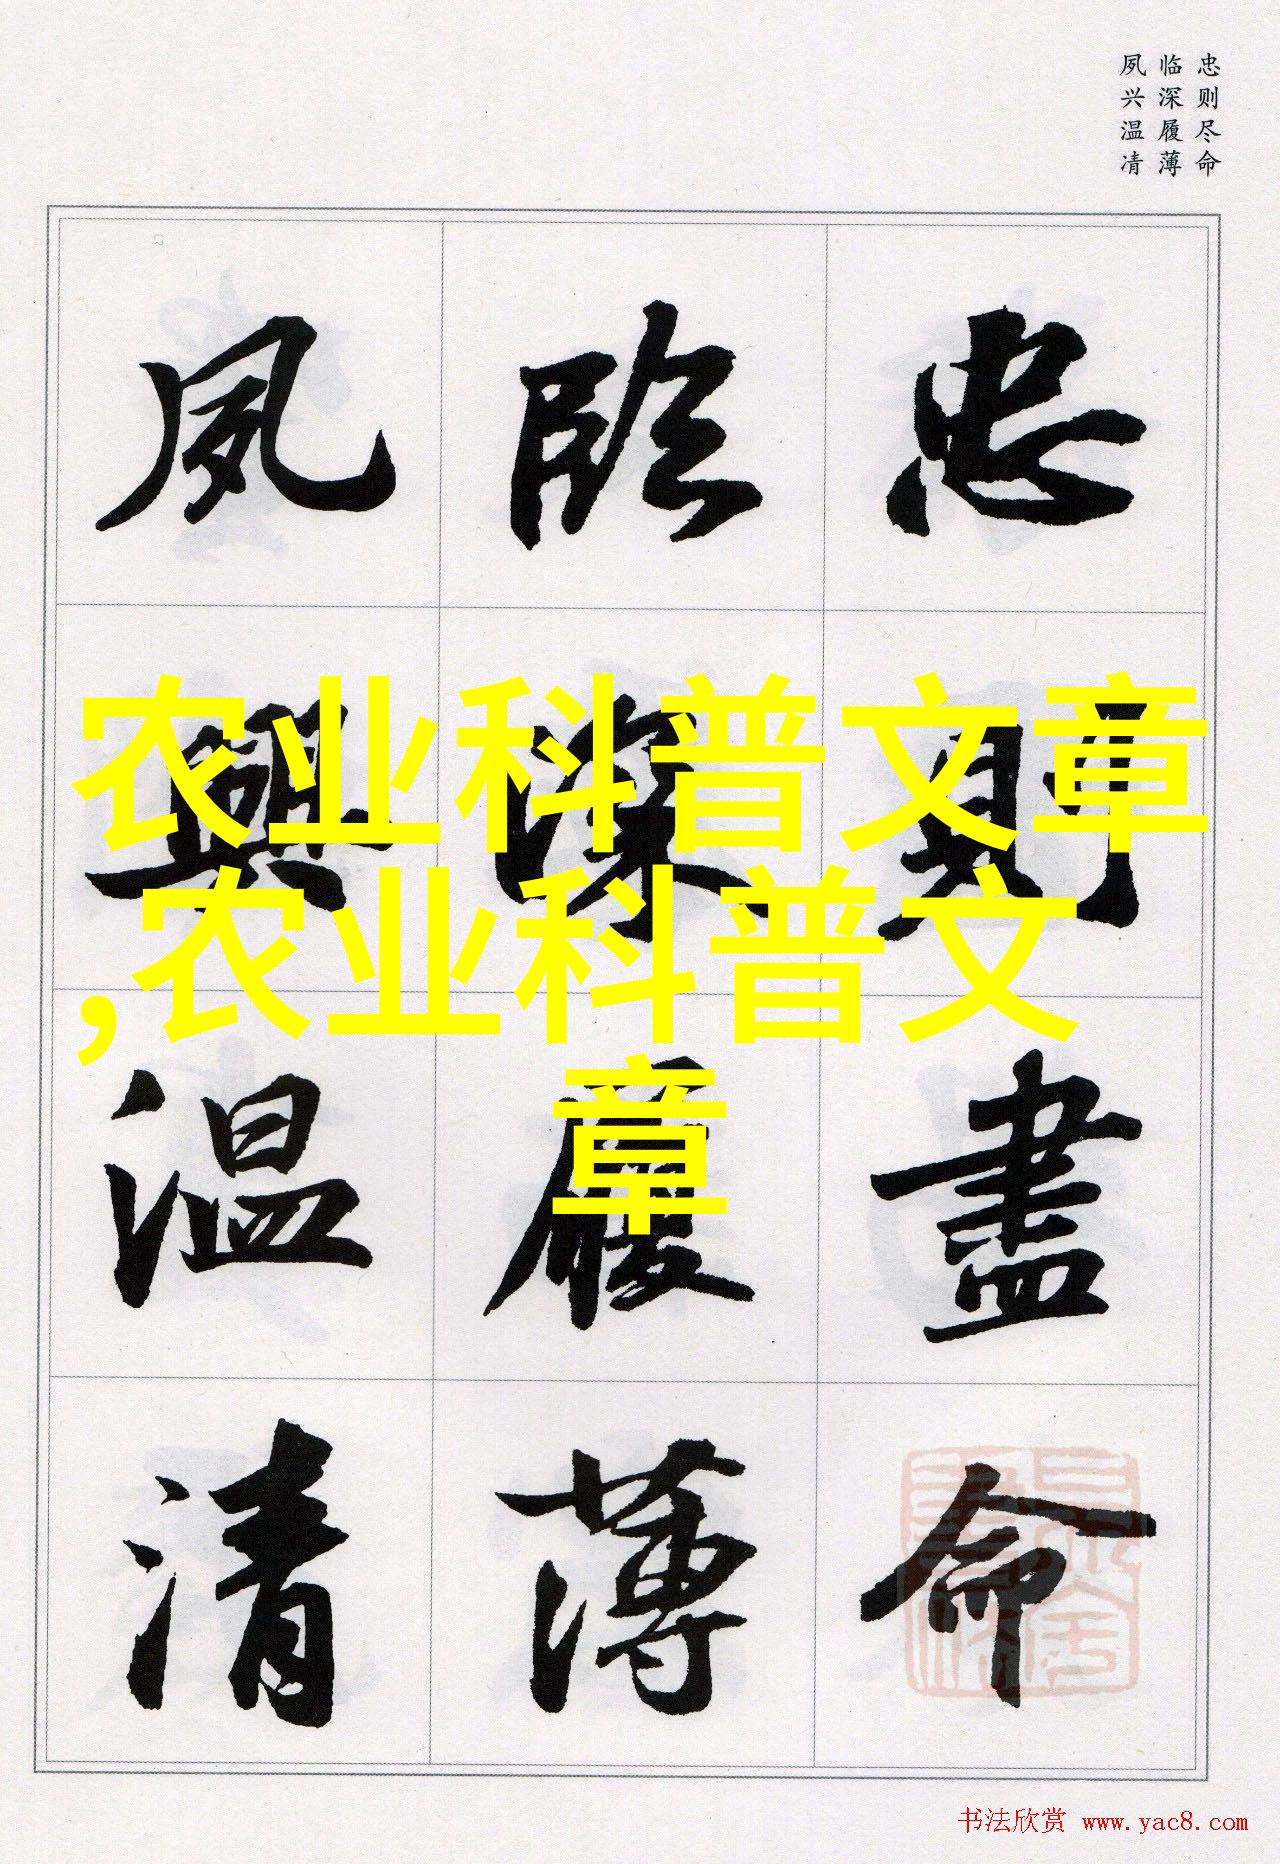 忠则尽命
临深履薄
夙兴温凊
忠則盡命
臨深履薄
夙興温清
农业科普文章
,农业科普文
章
书法欣赏 www.yac8.com